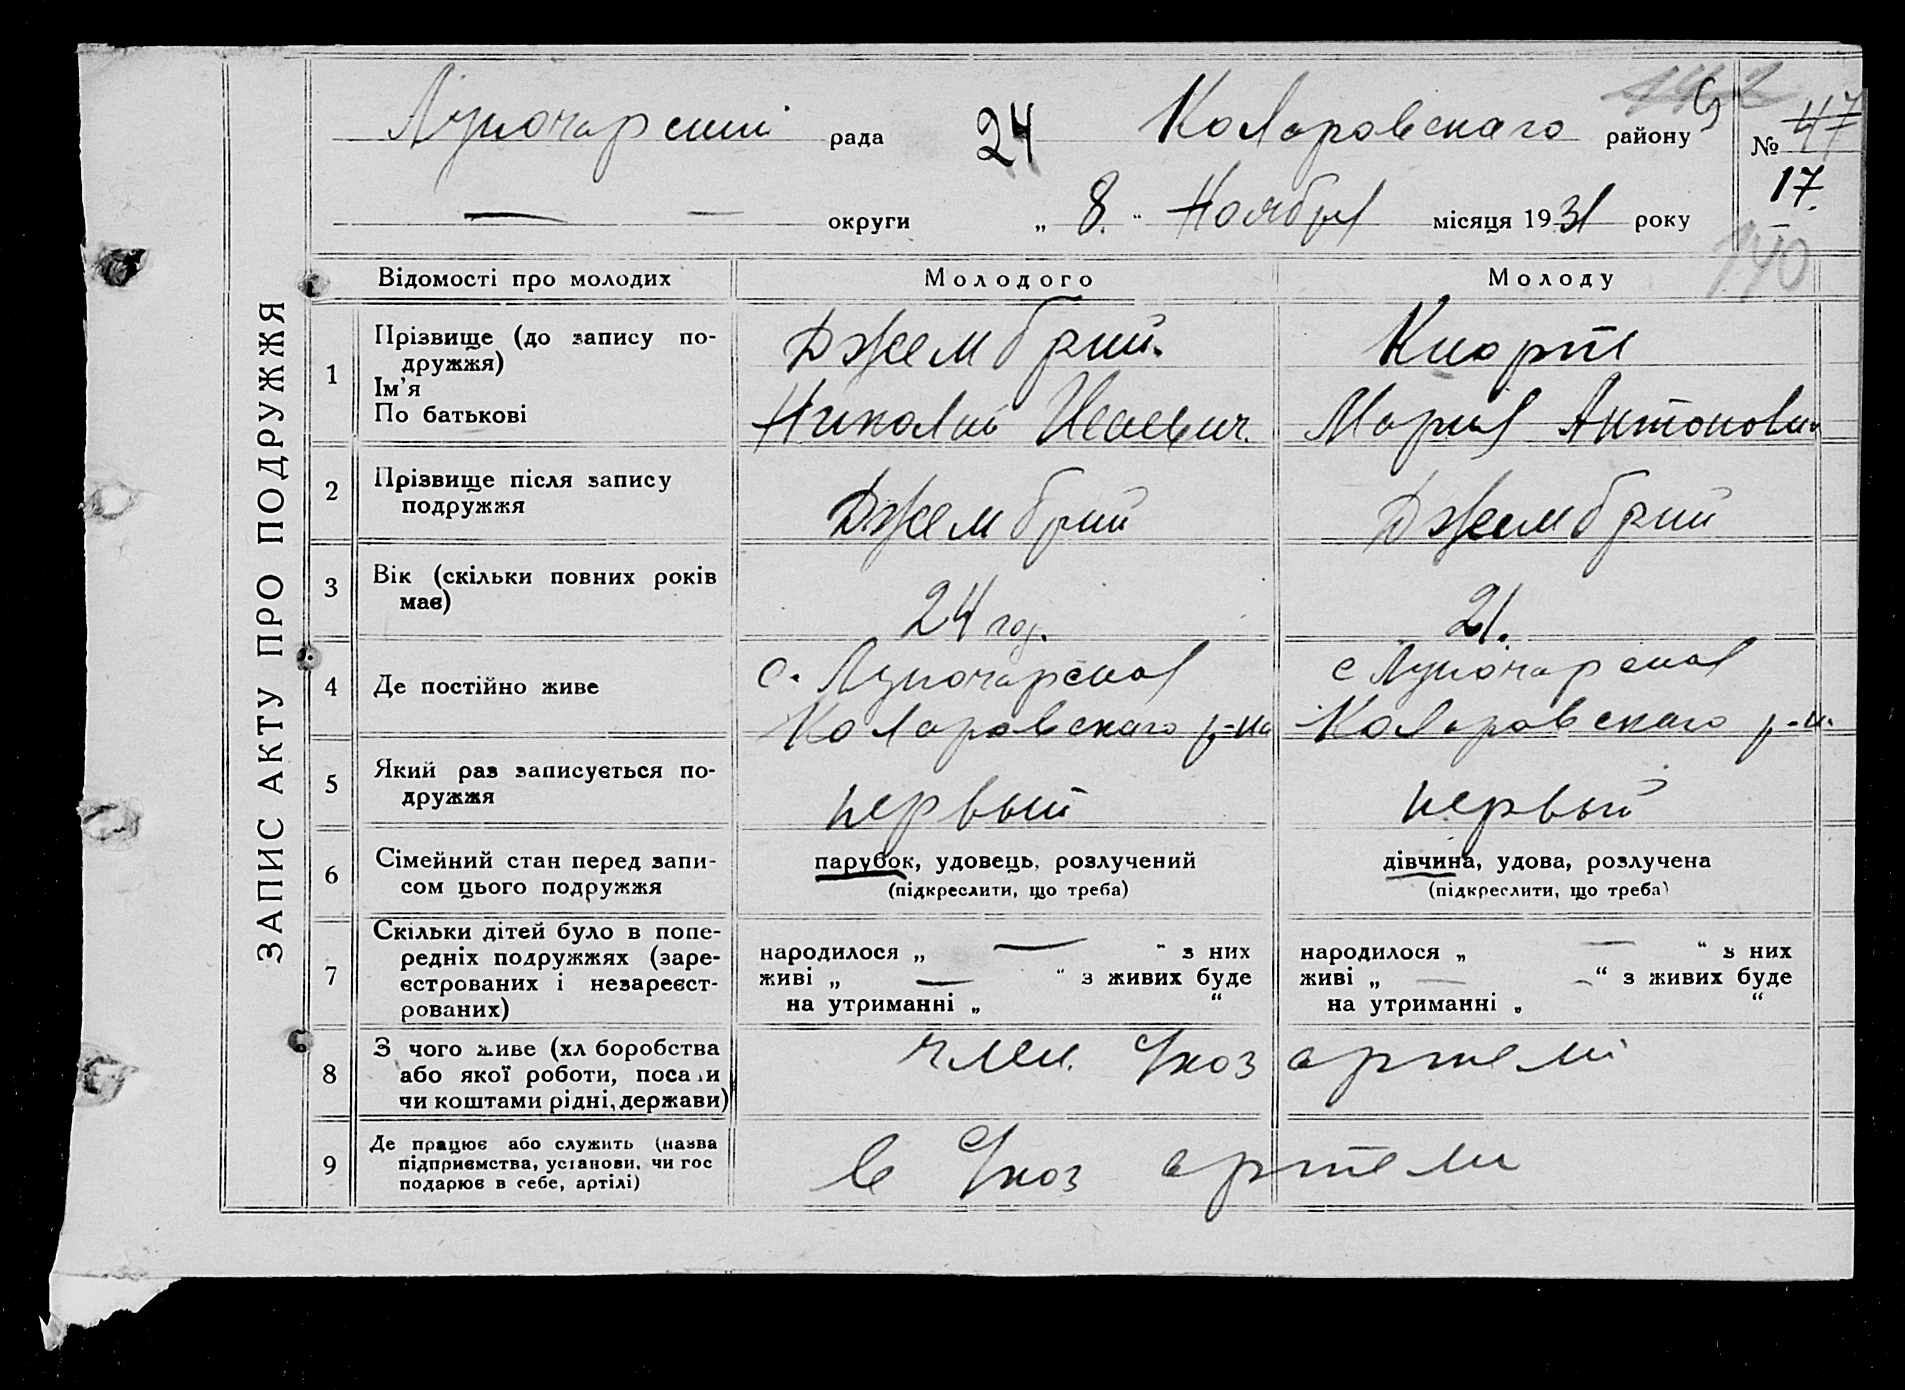 ЗАПИС АКТУ ПРО ПОДРУЖЖЯ
Луночарский рада 24 Коларовскаго району № 47
17.
— — округи „ 8. “ Ноября місяця 1931 року
140
Відомості про молодих Молодого Молоду
1 Прізвище (до запису по-
дружжя)
Ім'я
По батькові
Джембрий. Киорте
Николай Исаевич. Мария Антонови
2 Прізвище після запису
подружжя
Джембрий Джембрий
3 Вік (скільки повних років
має)
24 год. 21.
4 Де постійно живе
с. Луночарская с Луночарская
Коларовскаго р-на Коларовскаго р-н.
5 Який раз записується по-
дружжя
первый первый
6 Сімейний стан перед запи-
сом цього подружжя
парубок, удовець, розлучений дівчина, удова, розлучена
(підкреслити, що треба) (підкреслити, що треба)
7 Скільки дітей було в попе-
редніх подружжях (заре-
єстрованих і незареєст-
рованих)
народилося „ — “ з них народилося „ — “ з них
живі „ — “ з живих буде живі „ — “ з живих буде
на утриманні „ “ на утриманні „ “
8 З чого живе (хліборобства
або якої роботи, посади
чи коштами рідні, держави)
член. с/хоз артели
9 Де працює або служить (назва
підприємства, установи, чи гос
подарює в себе, артілі)
в с/хоз артели